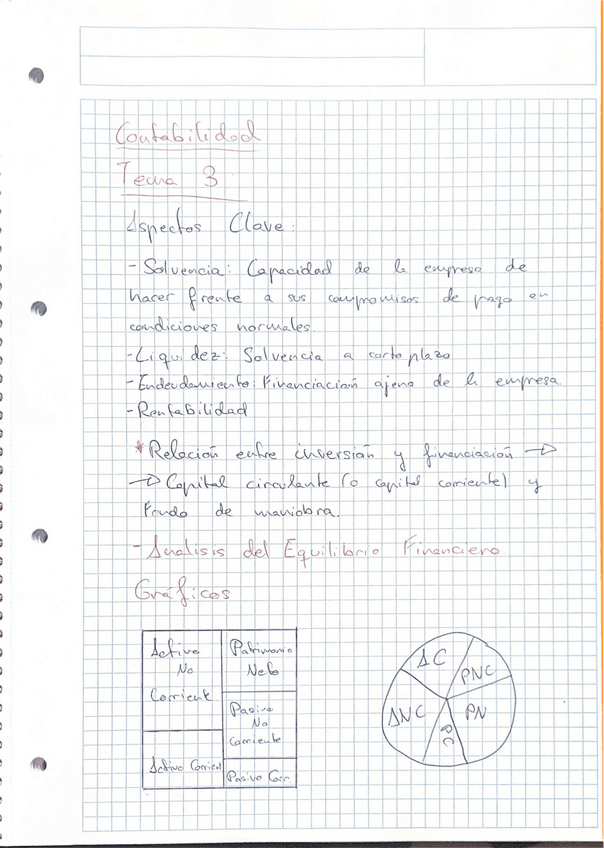 Contabilidad
Tema 3
Aspectos Clave:
- Solvencia: Capacidad de la empresa de
hacer frente a sus compromisos de pago en
condiciones normales.
- Liquidez: Solvencia a corto plazo
- Endeudamiento: Financiación ajena de la empresa
- Rentabilidad
* Relación entre inversión y financiación →
→ Capital circulante (o capital corriente) y
Fondo de maniobra.
- Analisis del Equilibrio Financiero
Gráficos
Activo
No
Corriente
Activo Corrient
Patrimonio
Neto
Pasivo
No
Corriente
Pasivo Corr.
AC
PNC
ANC
PN
PC